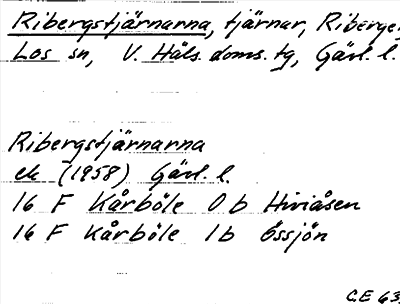 Ribergstjärnarna, tjärnar, Riberge,
Los sn, V. Häls. doms. tg, Gävl. l.
Ribergstjärnarna
ek (1958) Gävl. l.
16 F Kårböle 0 b Hiviåsen
16 F Kårböle 1 b Össjön
C.E 63